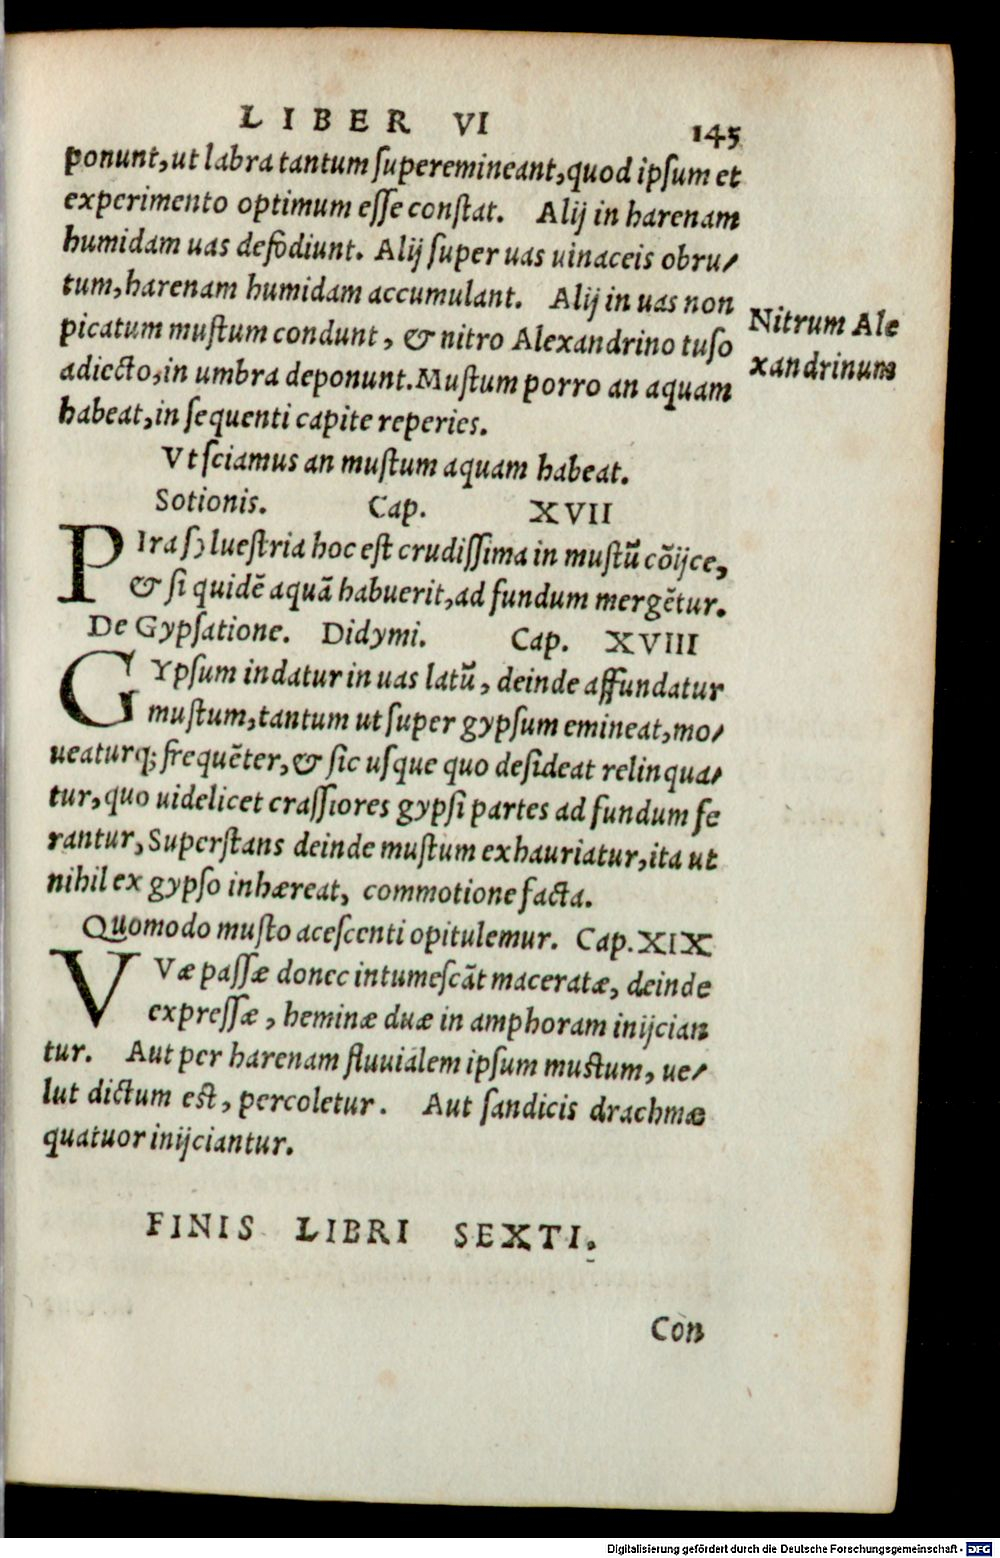 LIBER VI 145
ponunt, ut labra tantum ſuperemineant, quod ipſum et
experimento optimum eſſe conſtat. Alij in harenam
humidam uas defodiunt. Alij ſuper uas uinaceis obru/
tum, harenam humidam accumulant. Alij in uas non
picatum muſtum condunt, & nitro Alexandrino tuſo
adiecto, in umbra deponunt. Muſtum porro an aquam
habeat, in ſequenti capite reperies.
Nitrum Ale
xandrinum
Vt ſciamus an muſtum aquam habeat.
Sotionis. Cap. XVII
PIra ſylueſtria hoc eſt crudiſſima in muſtū cōijce,
& ſi quidē aquā habuerit, ad fundum mergētur.
De Gypſatione. Didymi. Cap. XVIII
GYpſum indatur in uas latū, deinde affundatur
muſtum, tantum ut ſuper gypſum emineat, mo/
ueaturq; frequēter, & ſic uſque quo deſideat relinqua/
tur, quo uidelicet craſſiores gypſi partes ad fundum fe
rantur, Superſtans deinde muſtum exhauriatur, ita ut
nihil ex gypſo inhæreat, commotione facta.
Quomodo muſto aceſcenti opitulemur. Cap. XIX
VVæ paſſæ donec intumeſcāt maceratæ, deinde
expreſſæ, heminæ duæ in amphoram inijcian
tur. Aut per harenam fluuialem ipſum muſtum, ue/
lut dictum eſt, percoletur. Aut ſandicis drachmæ
quatuor inijciantur.
FINIS LIBRI SEXTI.
Con
Digitalisierung gefördert durch die Deutsche Forschungsgemeinschaft - DFG